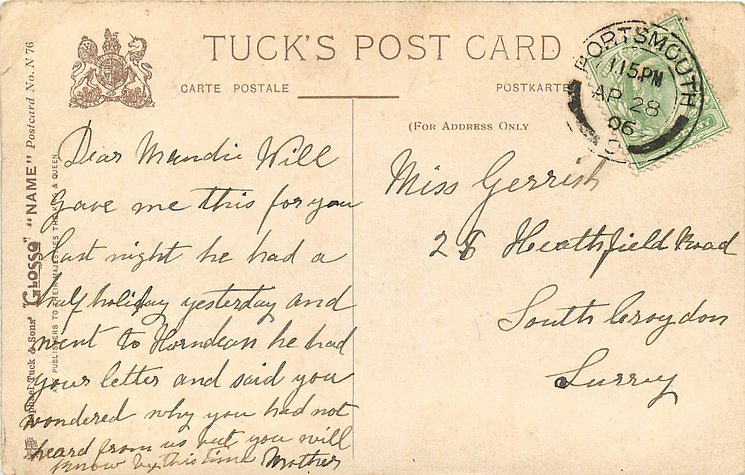 TUCK'S POST CARD
CARTE POSTALE
POSTKARTE
(FOR ADDRESS ONLY
PORTSMOUTH
1 15 PM
AP 28
06
Raphael Tuck & Sons' "GLOSSO" "NAME" Postcard No. N 76
PUBLISHERS TO THEIR MAJESTIES THE KING & QUEEN
Dear Maudie Will
gave me this for you
last night he had a
half holiday yesterday and
went to Horndean he had
your letter and said you
wondered why you had not
heard from us but you will
know by this time Mother
Miss Gerrish
Heathfield Road
South Croydon
Surrey